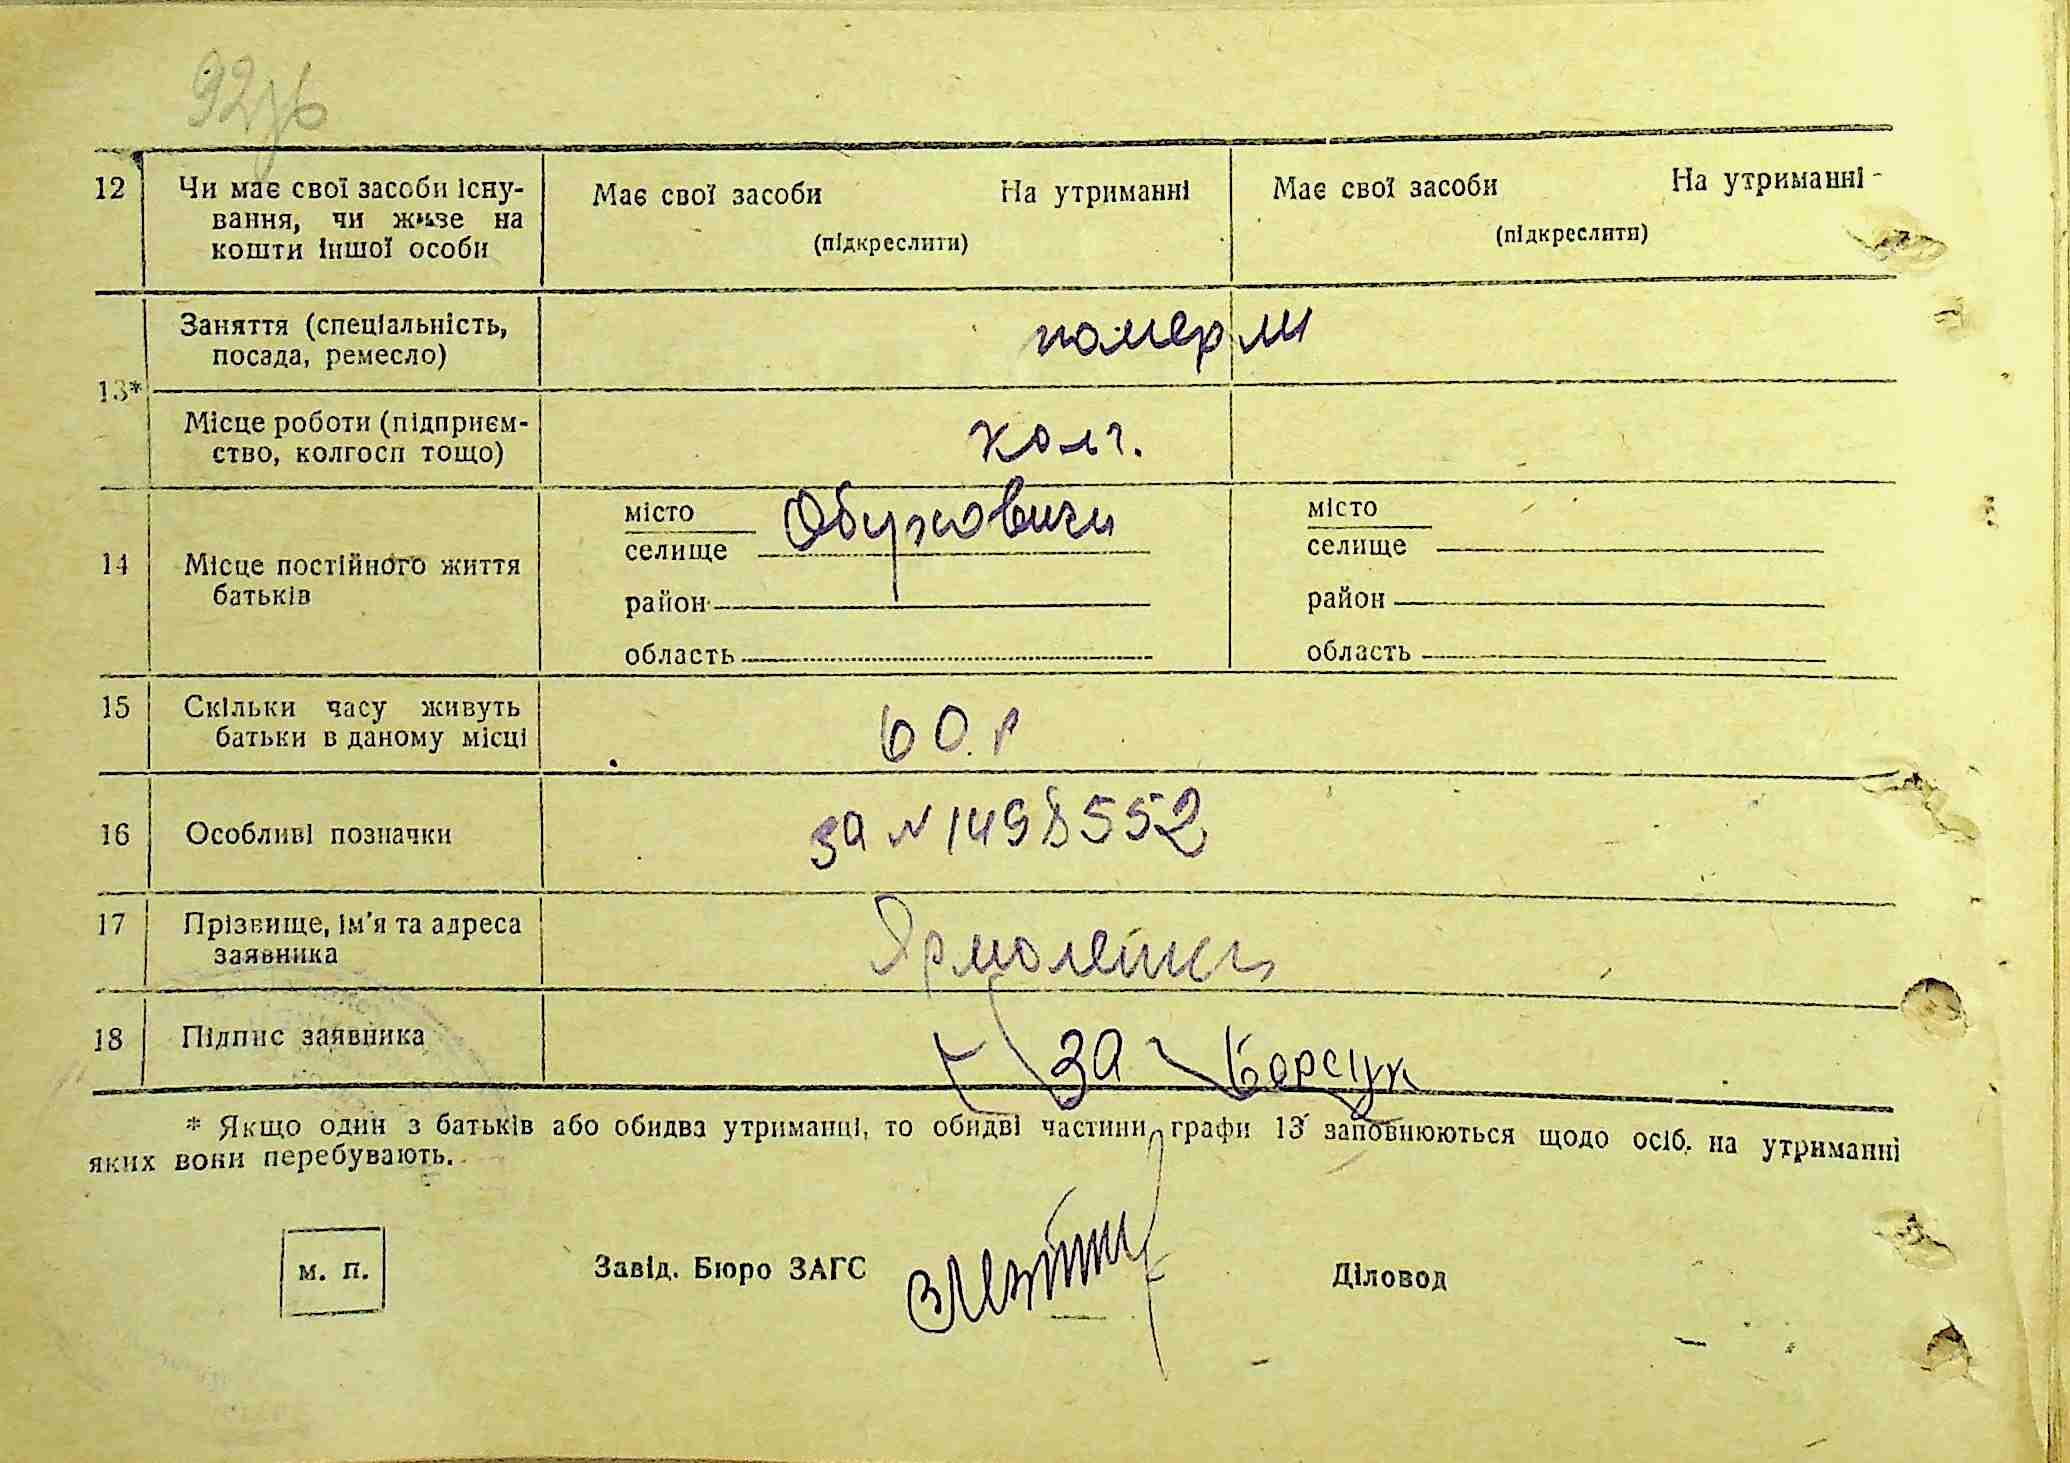 92зв
12 Чи має свої засоби існу-
вання, чи живе на
кошти іншої особи
Має свої засоби На утриманні
(підкреслити)
Має свої засоби На утриманні
(підкреслити)
13*
Заняття (спеціальність,
посада, ремесло)
померли
Місце роботи (підприєм-
ство, колгосп тощо)
колг.
14 Місце постійного життя
батьків
місто
селище Обуховичи
район
область
місто
селище
район
область
15 Скільки часу живуть
батьки в даному місці
60.р
16 Особливі позначки
за № 1498552
17 Прізвище, ім'я та адреса
заявника
18 Підпис заявника
за Борсук
* Якщо один з батьків або обидва утриманці, то обидві частини графи 13 заповнюються щодо осіб. на утриманні
яких вони перебувають.
м. п.
Завід. Бюро ЗАГС
Діловод